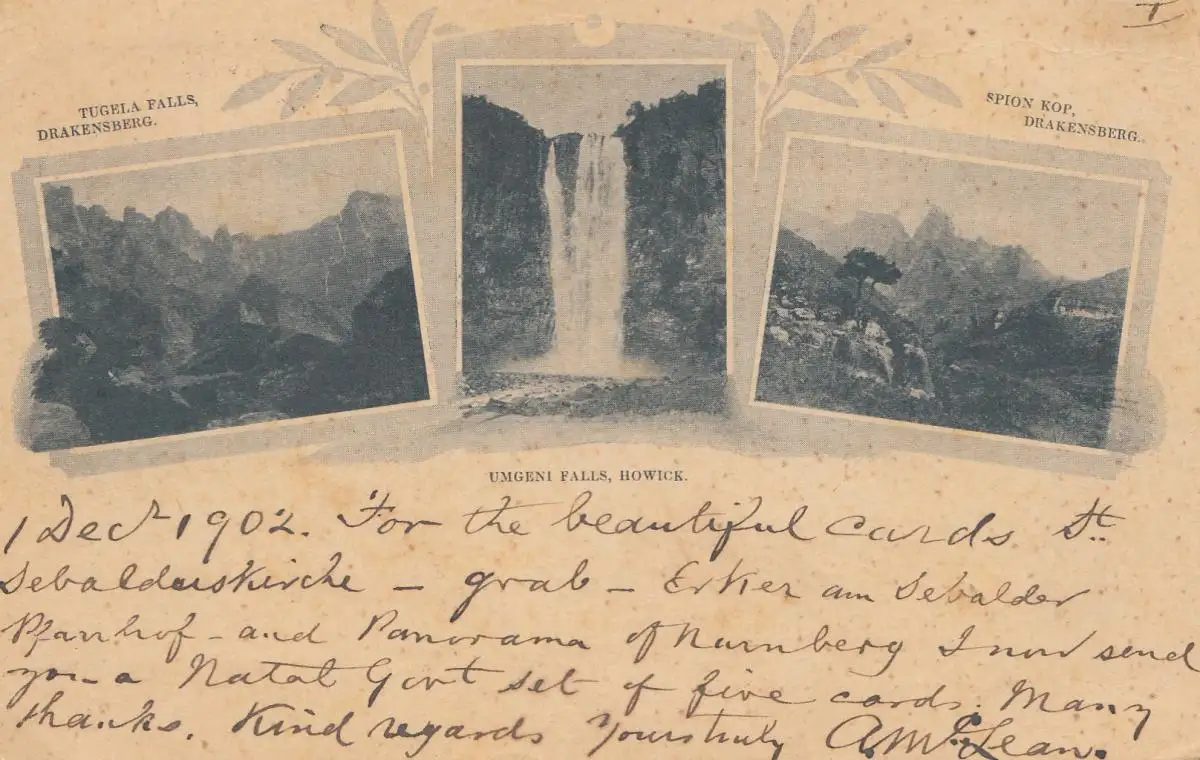 I
TUGELA FALLS,
DRAKENSBERG.
SPION KOP,
DRAKENSBERG.
UMGENI FALLS, HOWICK.
1 Decr 1902. For the beautiful cards St.
Sebalduskirche – grab – Erker am Sebalder
Pfarrhof – and Panorama of Nurnberg I now send
you a Natal Govt set of five cards. Many
thanks. Kind regards Yours truly A. McLean.